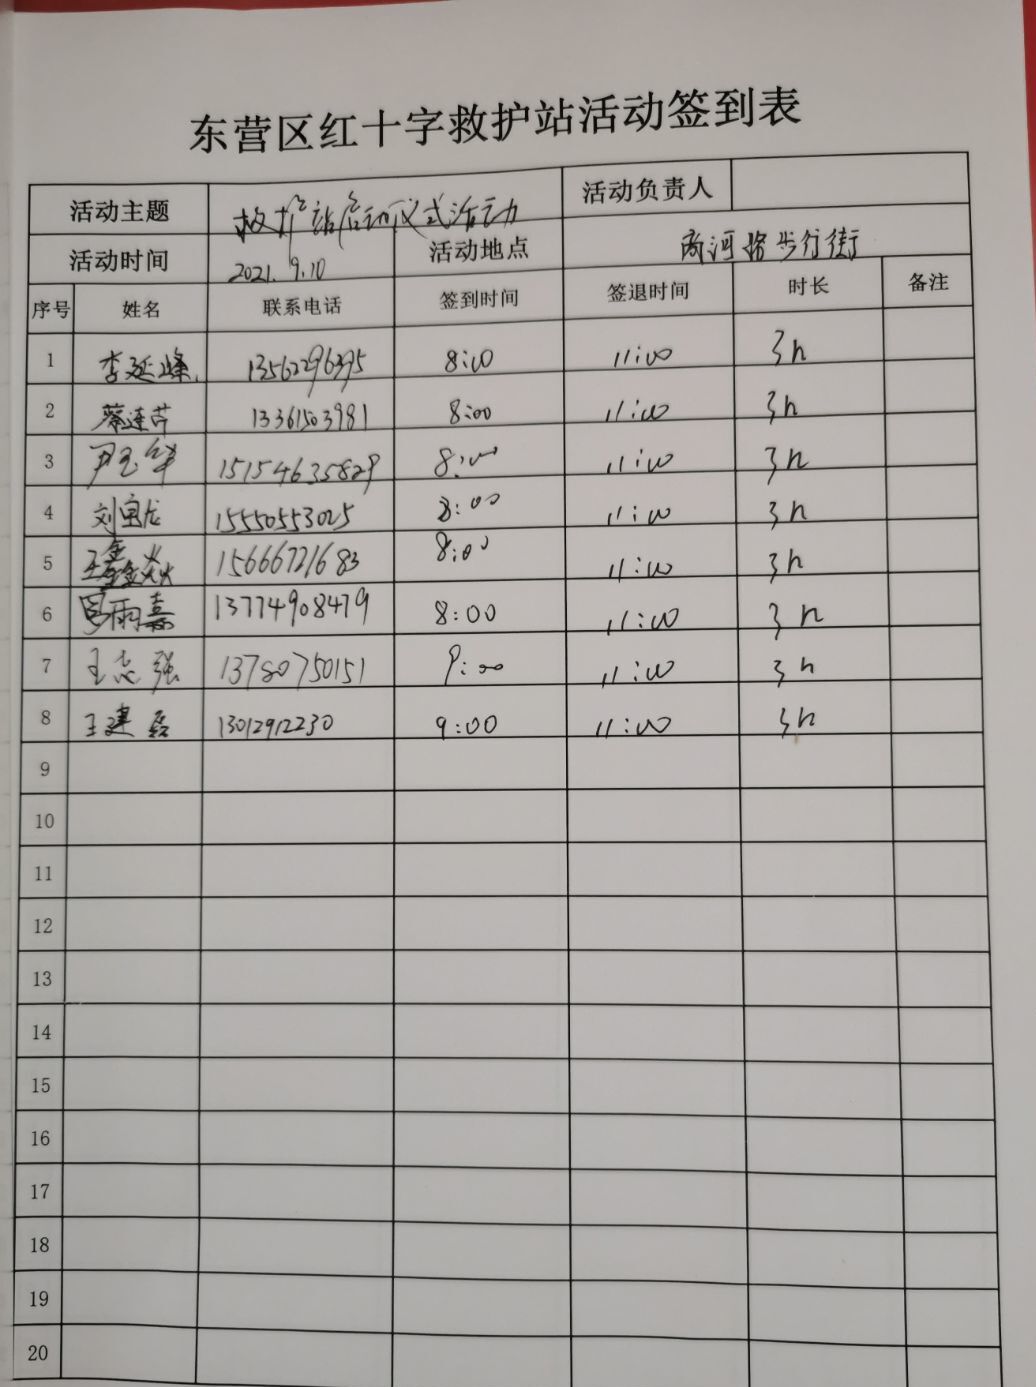 东营区红十字救护站活动签到表
活动主题 救护站启动仪式活动 活动负责人
活动时间 2021.9.10 活动地点 商河路步行街
序号 姓名 联系电话 签到时间 签退时间 时长 备注
1 李延峰 13562296395 8:00 11:00 3h
2 蔡连芹 13361503981 8:00 11:00 3h
3 尹玉华 15154635829 8:00 11:00 3h
4 刘宝龙 15550553025 8:00 11:00 3h
5 王鑫焱 15666721683 8:00 11:00 3h
6 雨嘉 13774908479 8:00 11:00 3h
7 王志强 13780750151 9:00 11:00 3h
8 王建磊 13012912230 9:00 11:00 3h
9
10
11
12
13
14
15
16
17
18
19
20